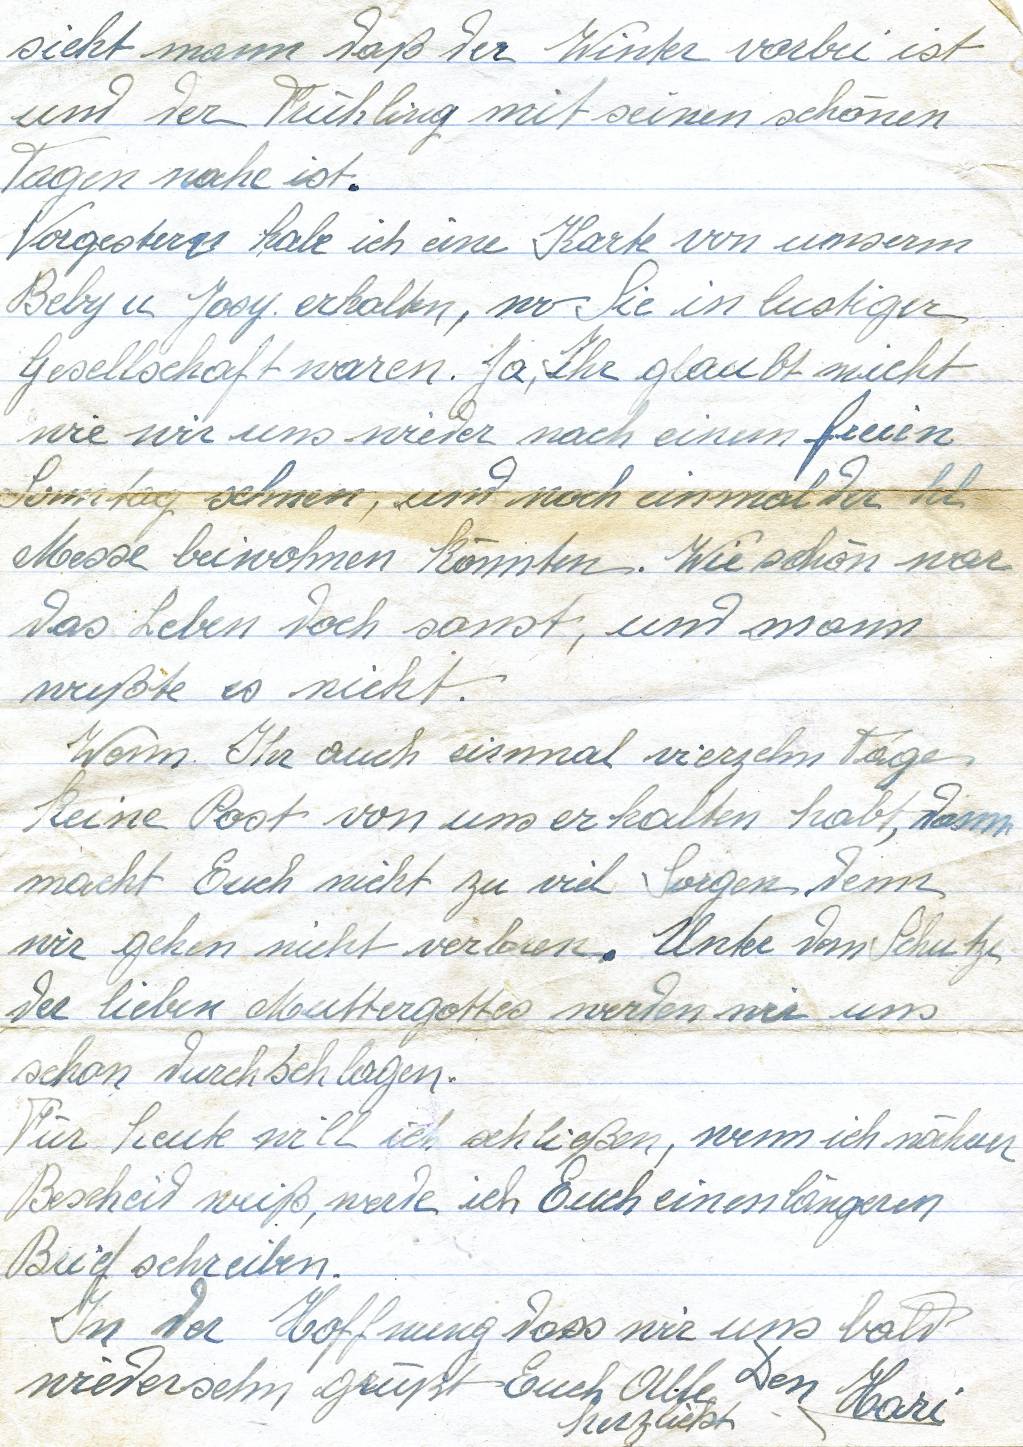 sieht mann daß der Winter vorbei ist
und der Frühling mit seinen schönen
Tagen nahe ist.
Vorgestern habe ich eine Karte von unserm
Beby u Josy. erhalten, wo Sie in lustiger
Gesellschaft waren. Ja, Ihr glaubt nicht
wie wir uns wieder nach einem freien
Sonntag sehnen, und noch einmal der hl
Messe beiwohnen könnten. Wie schön war
das Leben doch sonst, und mann
wußte es nicht.
Wenn Ihr auch einmal vierzehn Tage
keine Post von uns erhalten habt, dann
macht Euch nicht zu viel Sorgen, denn
wir gehen nicht verloren. Unter dem Schutze
der lieben Muttergottes werden wir uns
schon durchschlagen.
Für heute will ich schließen, wenn ich näheren
Bescheid weiß, werde ich Euch einen längeren
Brief schreiben.
In der Hoffnung dass wir uns bald
wiedersehn grüßt Euch Alle Den Hari
herzlichst